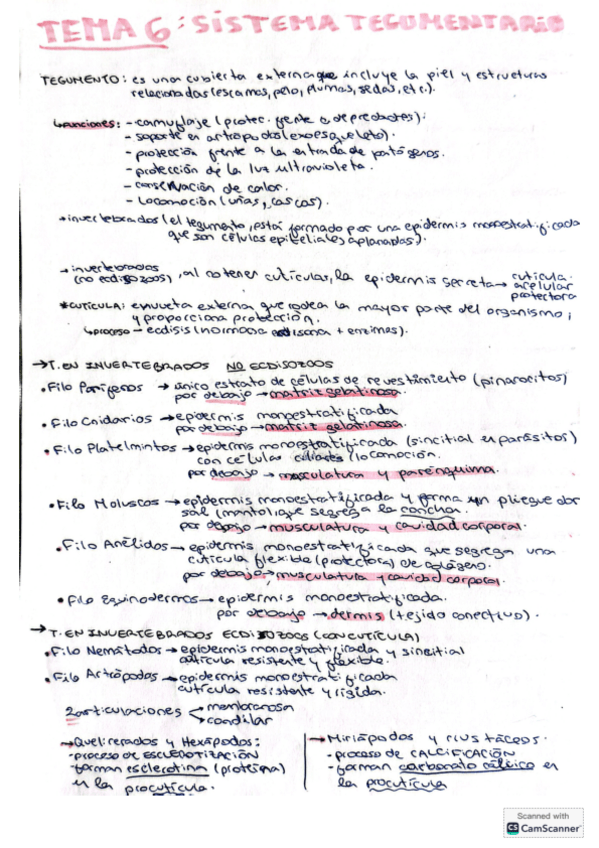 TEMA 6: SISTEMA TEGUMENTARIO
TEGUMENTO: es una cubierta externa que incluye la piel y estructuras
relacionadas (escamas, pelo, plumas, sedas, etc.).
↳ funciones: - camuflaje (protec. frente a depredadores).
- soporte en artrópodos (exoesqueleto).
- protección frente a la entrada de patógenos.
- protección de la luz ultravioleta.
- conservación de calor.
- locomoción (uñas, cascos).
* invertebrados (el tegumento, está formado por una epidermis monoestratificada
que son células epiteliales aplanadas).
→ invertebrados
(no ecdisozoos), al obtener cutículas, la epidermis secreta → cutícula
acelular
protectora
*CUTÍCULA: envuelta externa que rodea la mayor parte del organismo,
y proporciona protección.
↳ proceso - ecdisis (hormona ecdisona + enzimas).
→ T. EN INVERTEBRADOS NO ECDISOZOOS
• Filo Poríferos → único estrato de células de revestimiento (pinacocitos)
por debajo → matriz gelatinosa.
• Filo Cnidarios → epidermis monoestratificada
por debajo → matriz gelatinosa.
• Filo Platelmintos → epidermis monoestratificada (sincitial en parásitos)
con células ciliares / locomoción.
por debajo → musculatura y parénquima.
• Filo Moluscos → epidermis monoestratificada y forma un pliegue dor
sal (manto) que segrega la concha.
por debajo → musculatura y cavidad corporal.
• Filo Anélidos → epidermis monoestratificada que segrega una
cutícula flexible (protectora) de colágeno.
por debajo → musculatura y cavidad corporal.
• Filo Equinodermos → epidermis monoestratificada.
por debajo → dermis (tejido conectivo).
→ T. EN INVERTEBRADOS ECDISOZOOS (CON CUTÍCULA)
• Filo Nemátodos → epidermis monoestratificada y sincitial
cutícula resistente y flexible.
• Filo Artrópodos → epidermis monoestratificada
cutícula resistente y rígida.
2 articulaciones < membranosa
condilar
→ Quelicerados y Hexápodos:
- proceso de ESCLEROTIZACIÓN
- forman esclerotina (proteína)
en la procutícula.
→ Miriápodos y crustáceos.
- proceso de CALCIFICACIÓN
- forman carbonato cálcico en
la procutícula
Scanned with
CS CamScanner